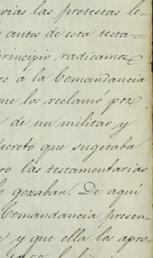 vias las protestas le-
y autos de esta testa-
principio radicamos
á la Comandancia
que los reclamó por
de un militar y
decreto que sugetaba
ro las testamentarias
gozaban. De aqui
Comandancia presen
y que ella los apro-